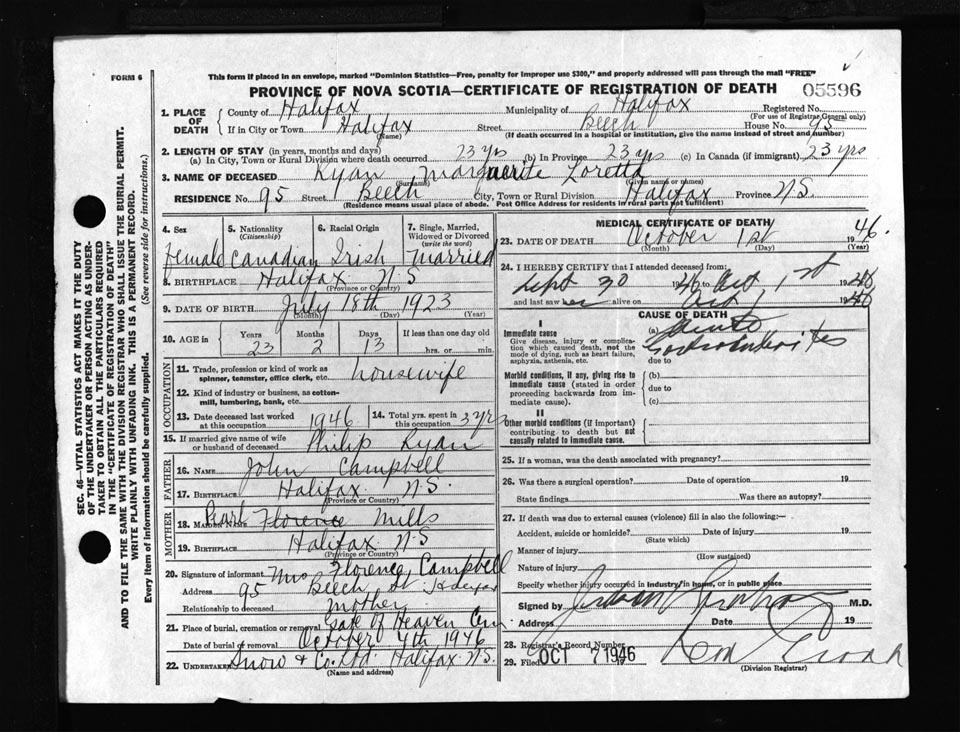 FORM 6
This form if placed in an envelope, marked "Dominion Statistics—Free, penalty for improper use $300," and properly addressed will pass through the mail "FREE"
PROVINCE OF NOVA SCOTIA—CERTIFICATE OF REGISTRATION OF DEATH 05596
1. PLACE OF DEATH County of Halifax Municipality of Halifax Registered No.
(For use of Registrar General only)
If in City or Town Halifax Street Beech House No. 95
(Name) (If death occurred in a hospital or institution, give the name instead of street and number)
2. LENGTH OF STAY (in years, months and days)
(a) In City, Town or Rural Division where death occurred 23 yrs (b) In Province 23 yrs (c) In Canada (if immigrant) 23 yrs
3. NAME OF DECEASED Ryan Marguerite Loretta
(Surname) (Given name or names)
RESIDENCE No. 95 Street Beech City, Town or Rural Division Halifax Province N.S.
(Residence means usual place of abode. Post Office Address for residents in rural parts not sufficient)
4. Sex Female
5. Nationality (Citizenship) Canadian
6. Racial Origin Irish
7. Single, Married, Widowed or Divorced (write the word) Married
8. BIRTHPLACE Halifax N.S
(Province or Country)
9. DATE OF BIRTH July 18th 1923
(Month) (Day) (Year)
10. AGE in Years 23 Months 2 Days 13 If less than one day old
hrs. or min.
OCCUPATION
11. Trade, profession or kind of work as spinner, teamster, office clerk, etc. housewife
12. Kind of industry or business, as cotton-mill, lumbering, bank, etc.
13. Date deceased last worked at this occupation 1946 14. Total yrs. spent in this occupation 3 yrs
15. If married give name of wife or husband of deceased Philip Ryan
FATHER
16. NAME John Campbell
17. BIRTHPLACE Halifax N.S.
(Province or Country)
MOTHER
18. MAIDEN NAME Pearl Florence Mills
19. BIRTHPLACE Halifax N.S
(Province or Country)
20. Signature of informant Mrs Florence Campbell
Address 95 Beech St Halifax
Relationship to deceased mother
21. Place of burial, cremation or removal Gate of Heaven Cem
Date of burial or removal October 4th 1946
22. UNDERTAKER Snow & Co. Ltd. Halifax N.S.
(Name and address)
MEDICAL CERTIFICATE OF DEATH
23. DATE OF DEATH October 1st 1946
(Month) (Day) (Year)
24. I HEREBY CERTIFY that I attended deceased from:
Sept 30 1946 to Oct 1st 1946
and last saw her alive on Oct 1 1946
CAUSE OF DEATH
I
Immediate cause (a) Acute
Give disease, injury or complication which caused death, not the mode of dying, such as heart failure, asphyxia, asthenia, etc. Gastroenteritis
due to
Morbid conditions, if any, giving rise to immediate cause (stated in order proceeding backwards from immediate cause). (b)
due to
(c)
II
Other morbid conditions (if important) contributing to death but not causally related to immediate cause.
25. If a woman, was the death associated with pregnancy?
26. Was there a surgical operation? Date of operation 19
State findings Was there an autopsy?
27. If death was due to external causes (violence) fill in also the following:—
Accident, suicide or homicide? Date of injury 19
(State which)
Manner of injury
(How sustained)
Nature of injury
Specify whether injury occurred in industry, in home, or in public place
Signed by M.D.
Address Date 19
28. Registrar's Record Number
29. Filed OCT 7 1946 19
(Division Registrar)
SEC. 46—VITAL STATISTICS ACT MAKES IT THE DUTY
OF THE UNDERTAKER OR PERSON ACTING AS UNDER-
TAKER TO OBTAIN ALL THE PARTICULARS REQUIRED
IN THE "CERTIFICATE OF REGISTRATION OF DEATH"
AND TO FILE THE SAME WITH THE DIVISION REGISTRAR WHO SHALL ISSUE THE BURIAL PERMIT.
WRITE PLAINLY WITH UNFADING INK. THIS IS A PERMANENT RECORD.
Every item of information should be carefully supplied. (See reverse side for instructions.)